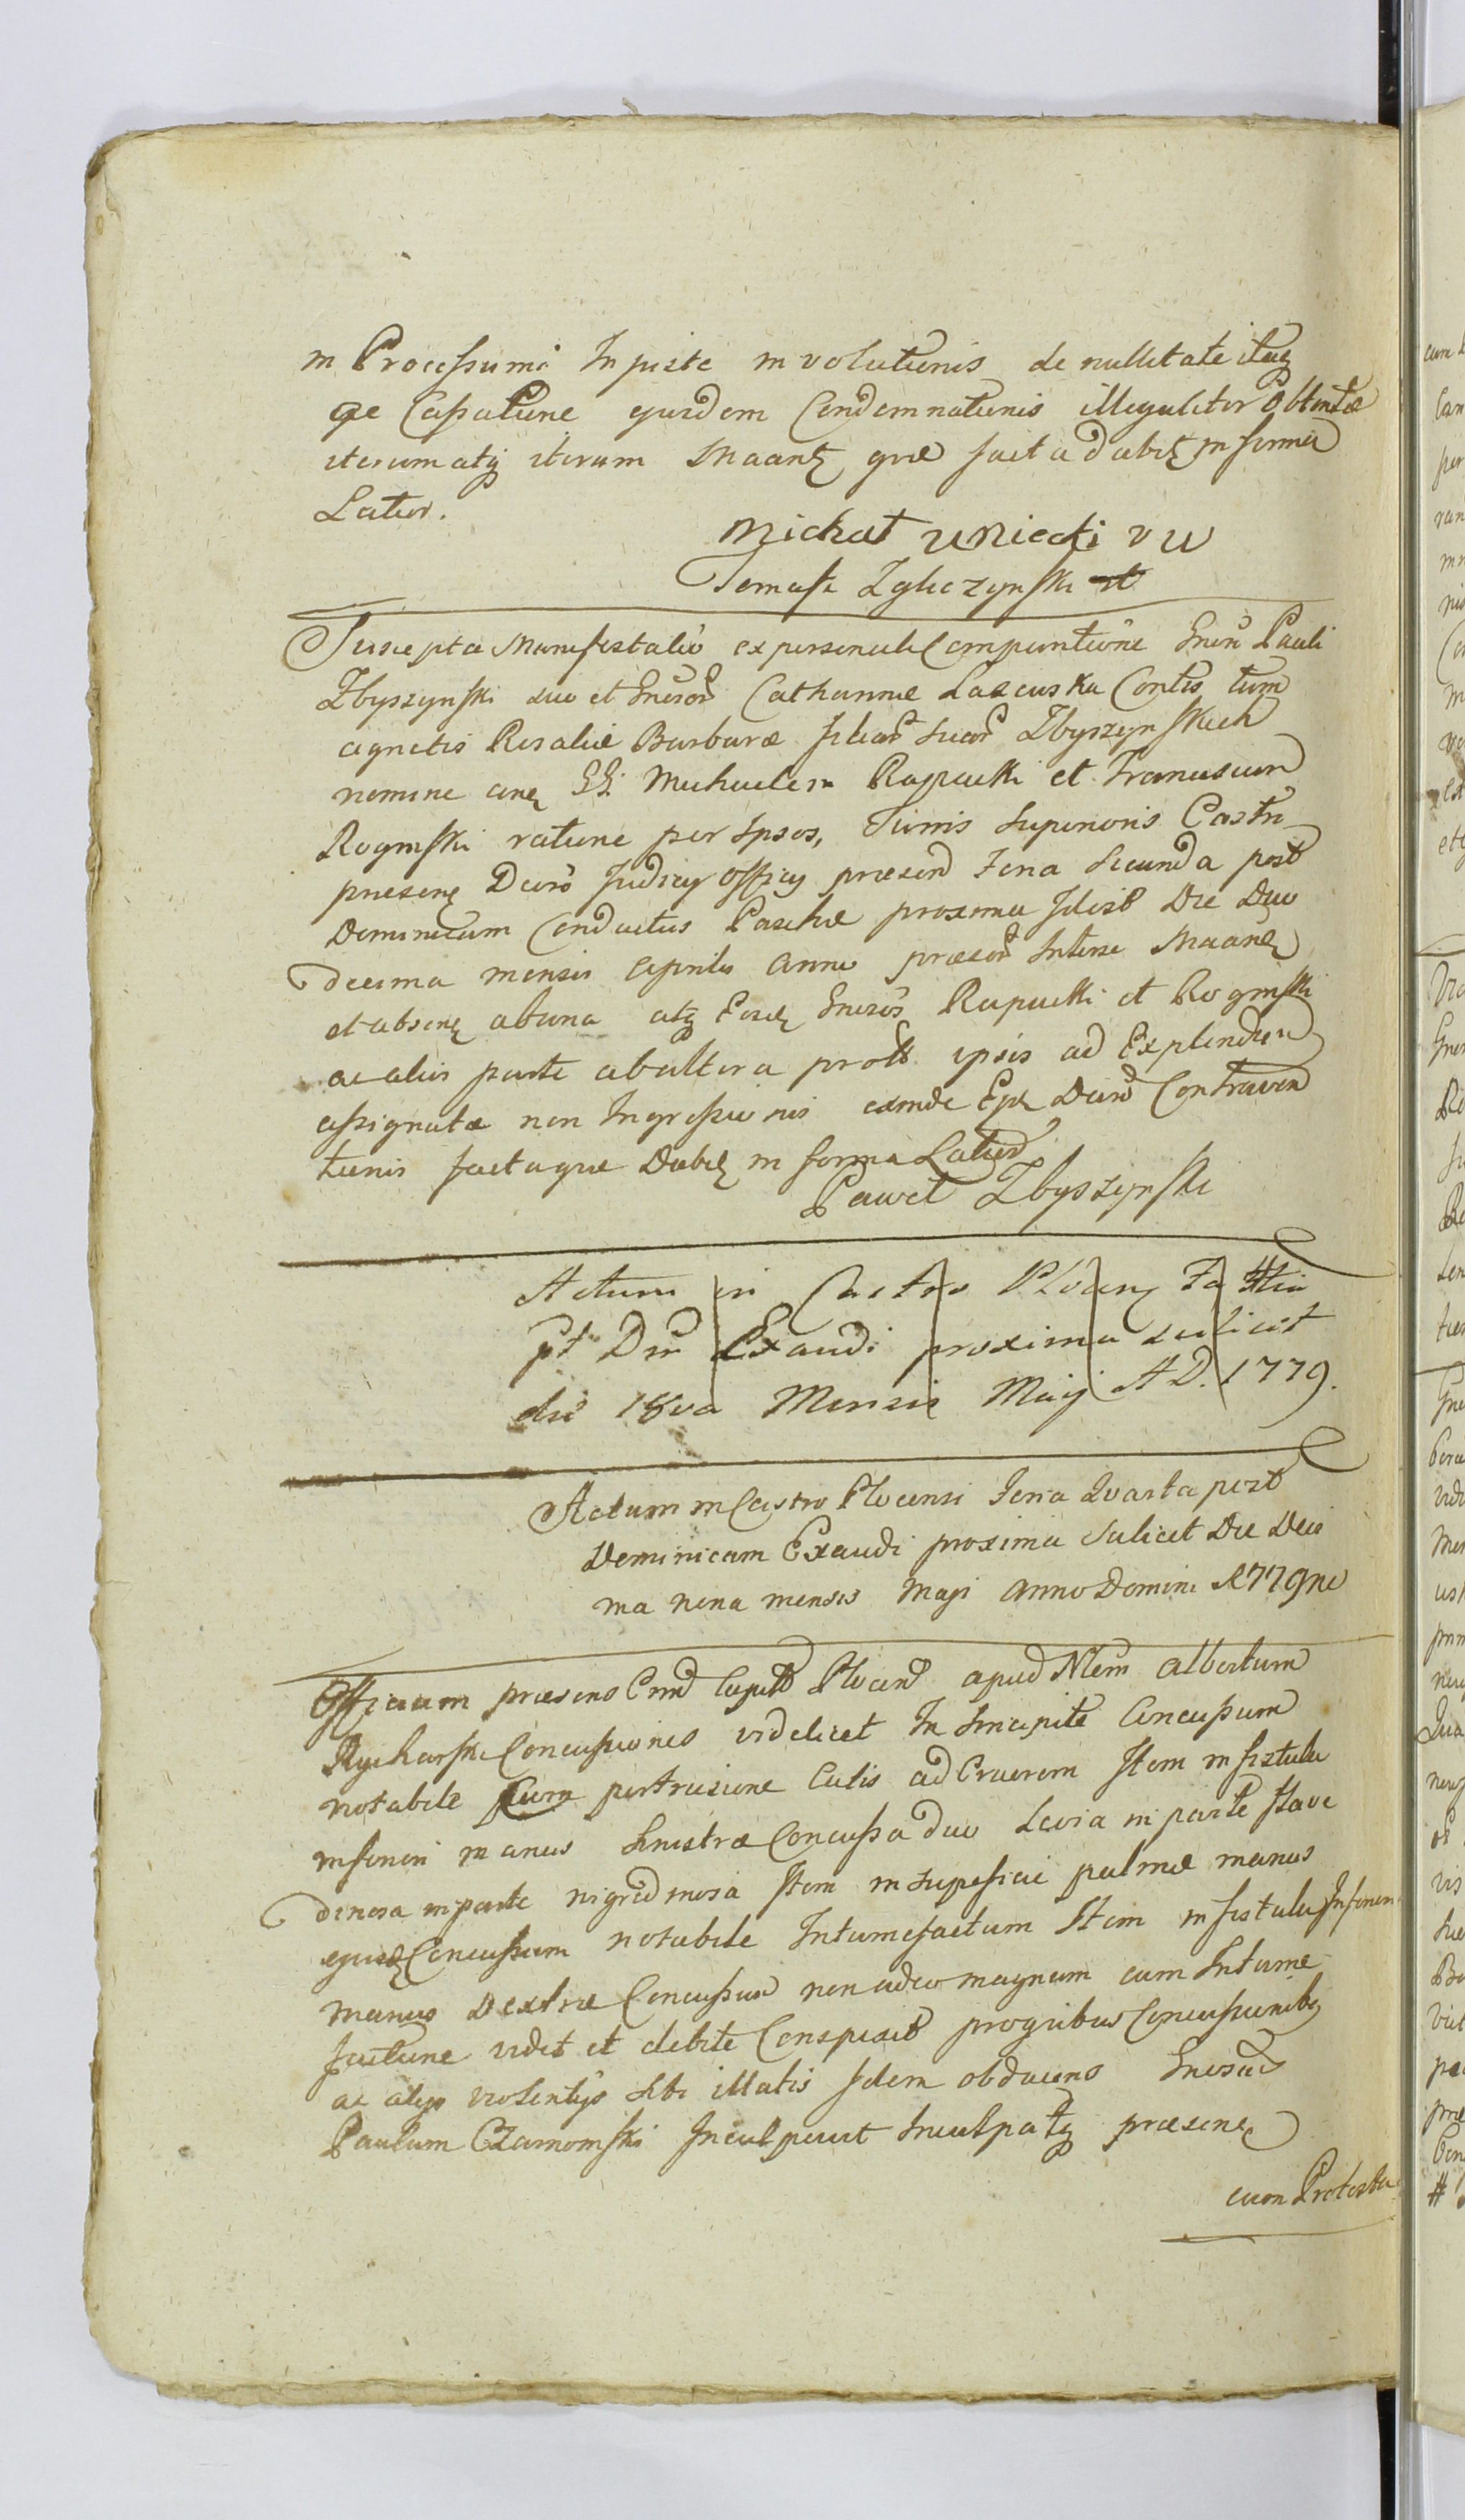 in Processumi Injuste involutionis de nullitate itaq
qe Cassatione ejusdem Condemnationis illegaliter Obtentæ
iterum atq iterum Maant quæ facta dabit in forma
Lator.
Michał Uniecki
Tomasz Zgliczynski
Suscepta Manifestatio ex personali Comparitione Gnen Pauli
Zbyszynski suo et Gnesor Catharinæ Conlis tum
Agnetis Rosaliæ Barbaræ filiar suar Zbyszynskich
nomine cnę GG. Michaelem Rapacki et Franciscum
Roginski ratione per Ipsos, Turris Superioris Castri
præsenę Decro Judicij Officij præsen Feria Secunda post
Dominicam Conductus Paschæ proxima Idest Die Duo
decima mensis Aprilis Anno præsen Interse Maanę
et absenę ab una atq Eosdę Gnesos Rapacki et Roginski
ac aliis parte ab altera prott ipsis ad Explendien
assignatæ non Ingressionis exinde Decro Contraven
tionis factaque Dabit in forma Lation
Paweł Zbyszynski
Actum in Castro Plocenę Fa IItia
pt Dm Exaudi proxima scilicet
die 18va Mensis Maij A D. 1779.
Actum in Castro Plocensi Feria Quarta post
Dominicam Exaudi proxima Scilicet Die Deci
ma nona mensis Maji Anno Domini 1779no
Officium præsens Capitt Plocen apud Nlem Albertum
Rycharski Concussiones videlicet In Sincipite Concussum
notabile Cum pertrusione Cutis ad Cruorem Item in fistula
inferiori manus Sinistræ Concussa duo Levia in parte flave
dinosa in parte nigredinosa Item in superficie palmæ manus
ejusdę Concussum notabile Intumefactum Item in fistula Inferiori
manus Dextræ Concussum non adeo magnum cum Intume
factione vidit et debite Conspexit pro quibus Concussionibq
ac aliis violentijs Sibi illatis Idem obducens Gnosum
Paulum Czarnomski Inculpavit Inculpatq præsenę
cum Protesta